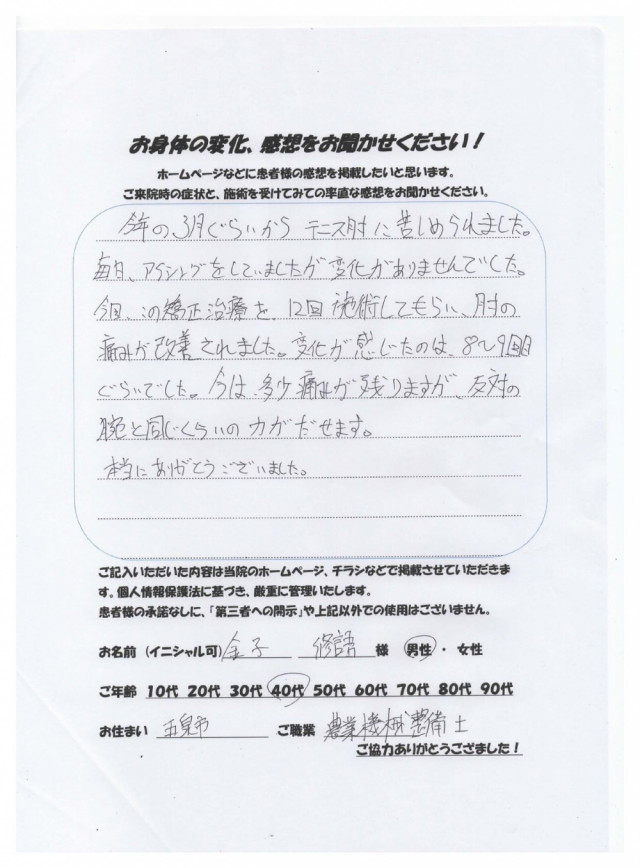 お身体の変化、感想をお聞かせください！
ホームページなどに患者様の感想を掲載したいと思います。
ご来院時の症状と、施術を受けてみての率直な感想をお聞かせください。
今年の3月ぐらいから テニス肘に苦しめられました。
毎日、アイシングをしていましたが変化がありませんでした。
今回、この矯正治療を、12回施術してもらい、肘の
痛みが改善されました。変化が感じたのは、8〜9回目
ぐらいでした。今は、多少痛みが残りますが、反対の
腕と同じくらいの力がだせます。
本当にありがとうございました。
ご記入いただいた内容は当院のホームページ、チラシなどで掲載させていただきま
す。個人情報保護法に基づき、厳重に管理いたします。
患者様の承諾なしに、「第三者への開示」や上記以外での使用はございません。
お名前（イニシャル可） 金子 修語 様 男性 ・ 女性
ご年齢 10代 20代 30代 40代 50代 60代 70代 80代 90代
お住まい 五泉市 ご職業 農業機械整備士
ご協力ありがとうござました！